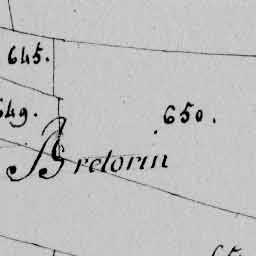 645.
649.
650.
Bretorin